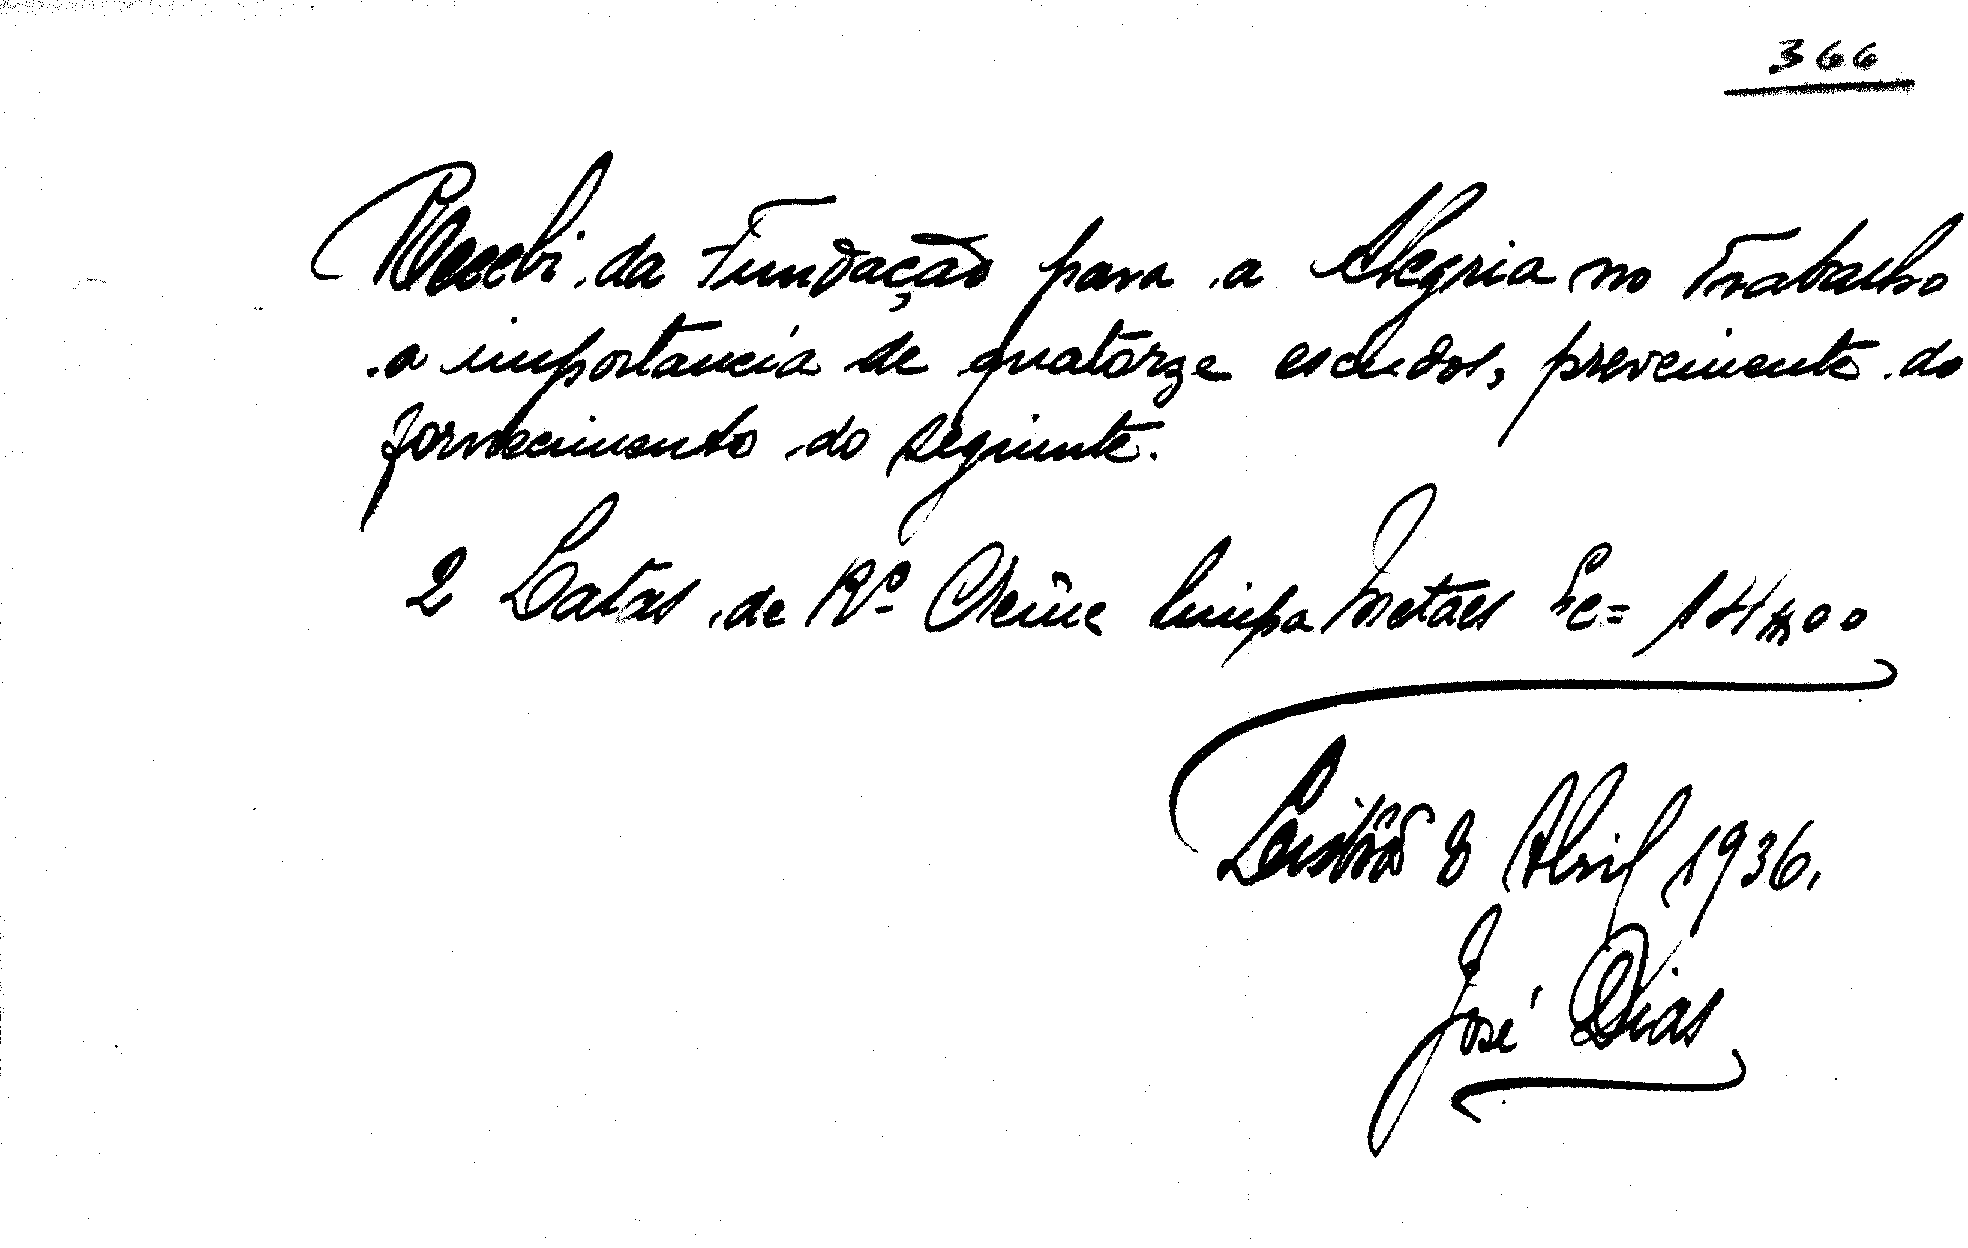 366
Recebi da Fundação para a Alegria no Trabalho
a importancia de quatôrze escudos, proveniente do
fornecimento do seguinte.
2 Latas de Kº Creme limpa Metaes Ec= 14$00
Lisbôa 8 Abril 1936.
José Dias